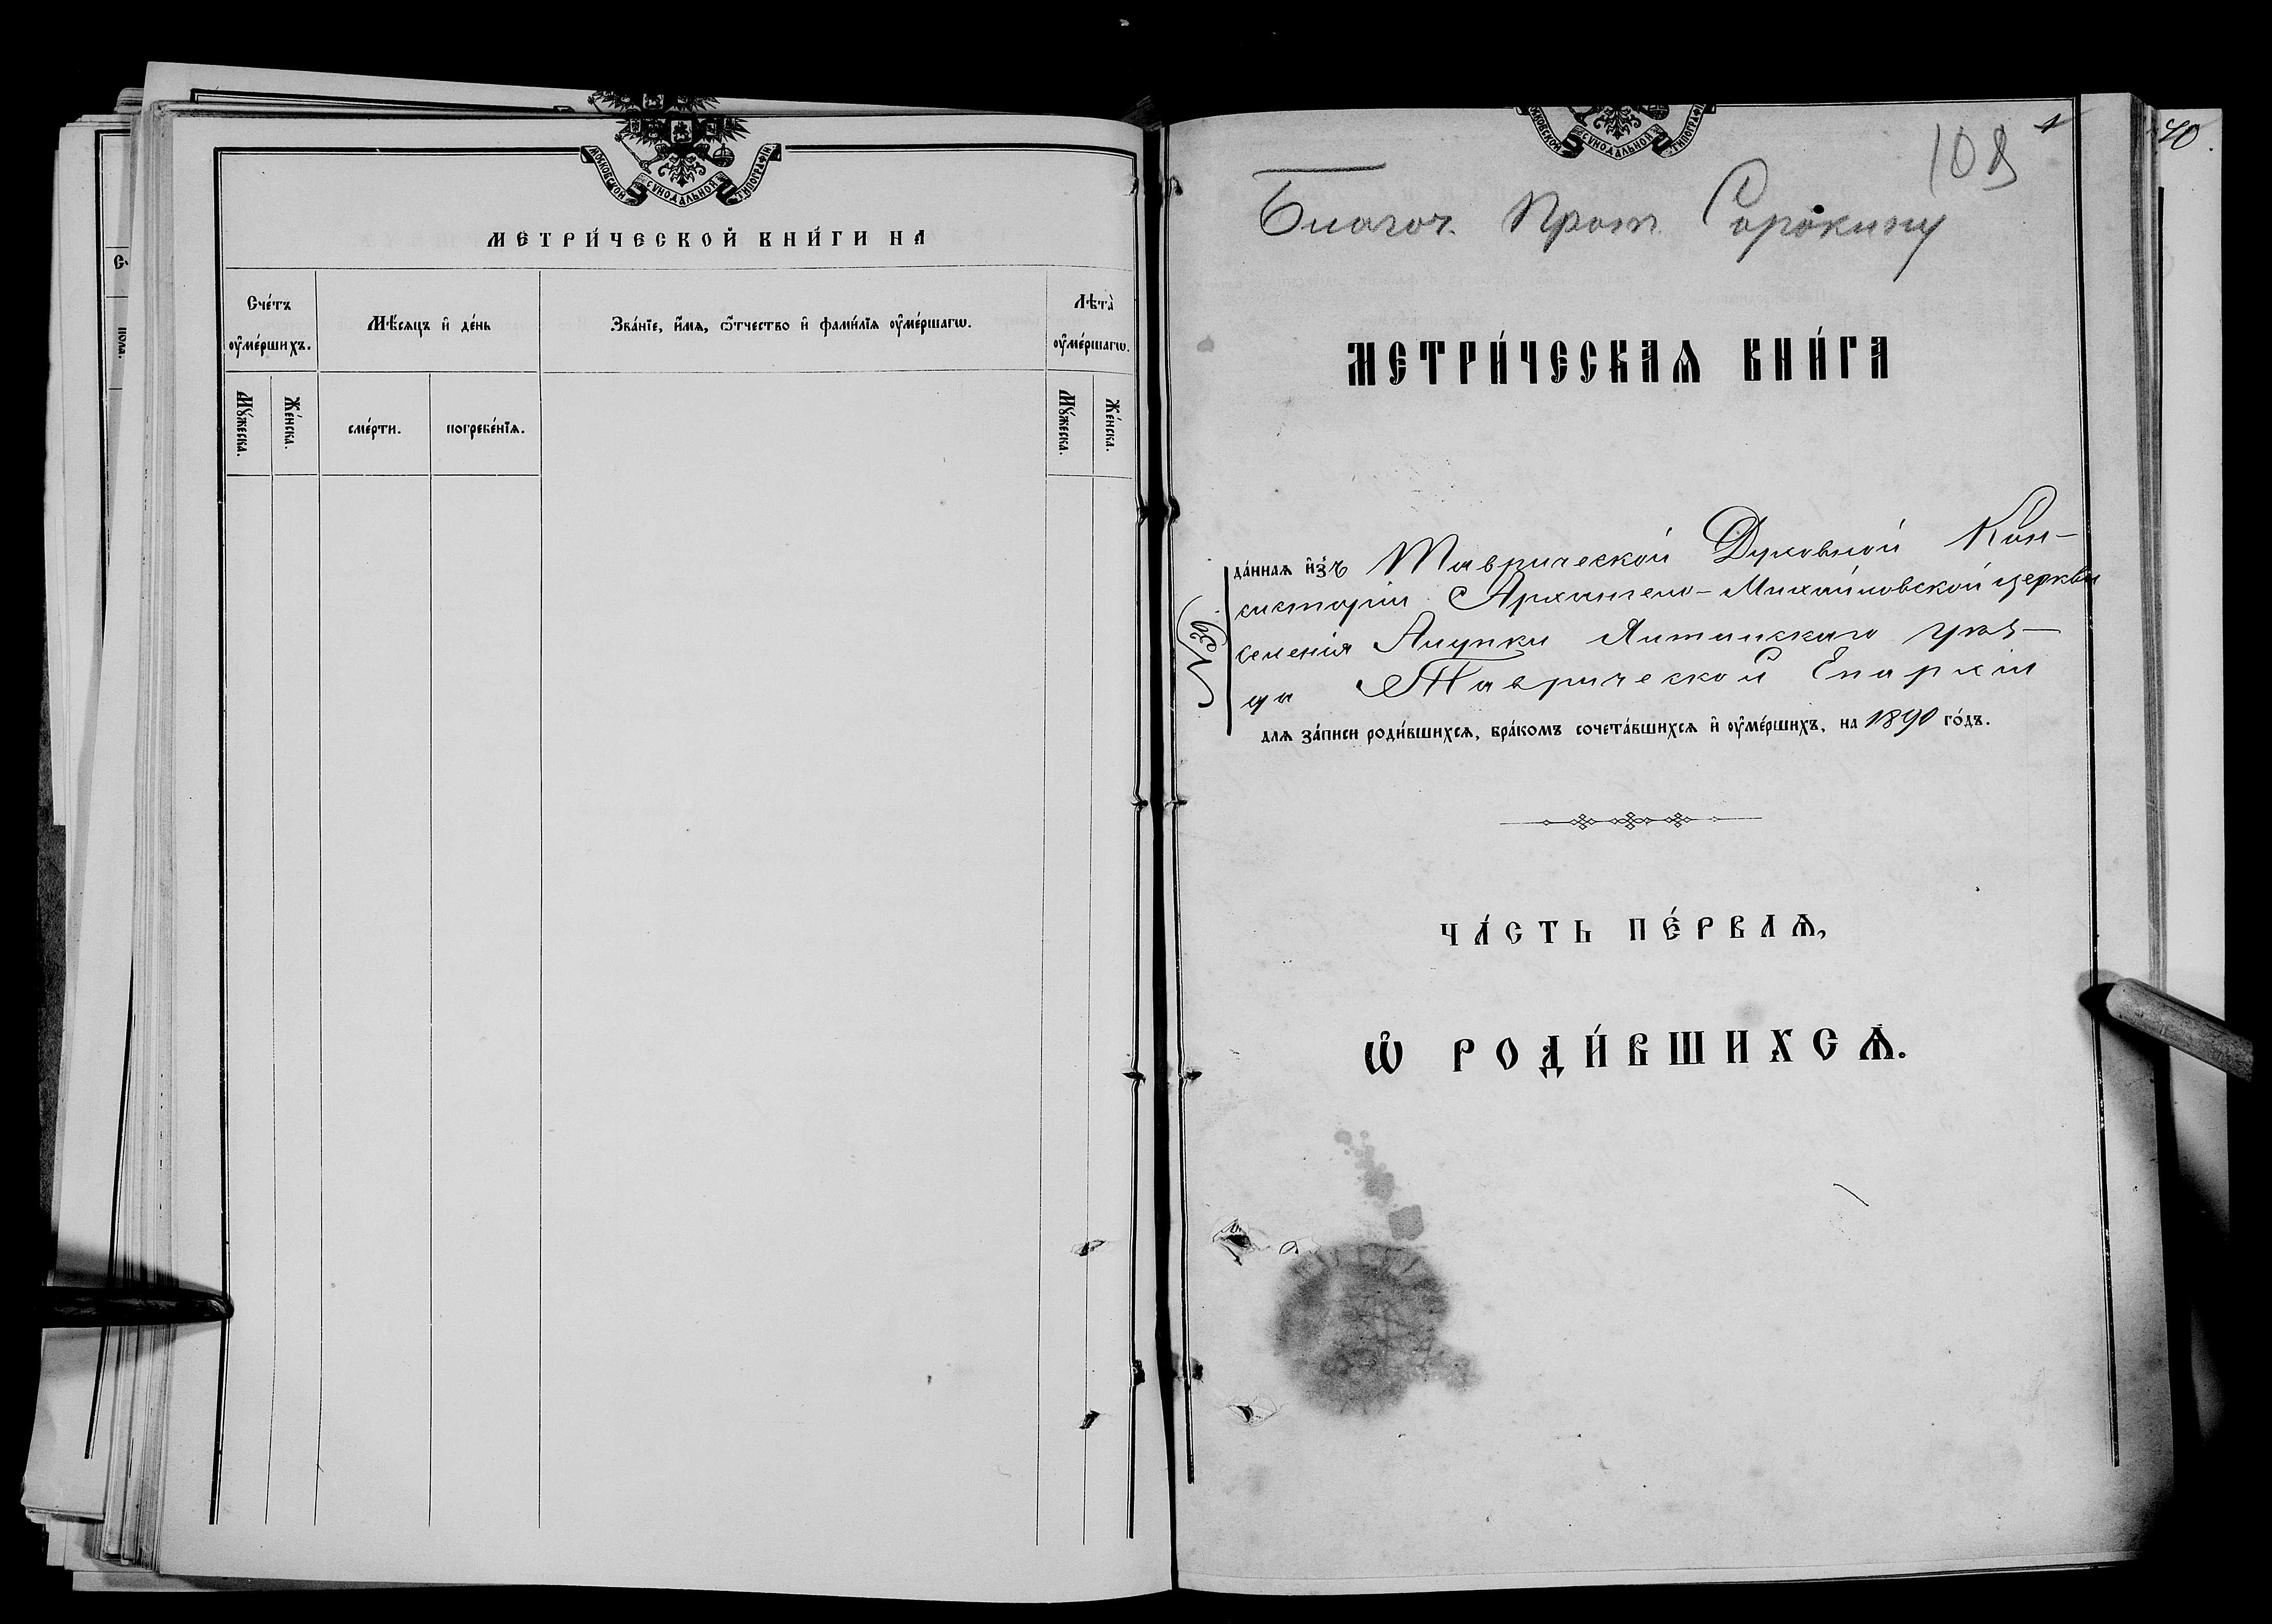 МОСКОВСКОЙ СѴНОДАЛЬНОЙ ТИПОГРАФІИ
МЕТРИ́ЧЕСКОЙ КНИ́ГИ НА
Сче́тъ ᲂу҆ме́ршихъ.
Мѣ́сяцъ и҆ де́нь
Зва́нїе, и҆́мя, ѻ҆́тчество и҆ фами́лїя ᲂу҆ме́ршагѡ.
Лѣта̀ ᲂу҆ме́ршагѡ.
Мꙋ́жеска.
Же́нска.
сме́рти.
погребе́нїя.
Мꙋ́жеска.
Же́нска.
пола.
40.
МОСКОВСКОЙ СѴНОДАЛЬНОЙ ТИПОГРАФІИ
1
108
Благоч. Прот. Сорокину
МЕТРИ́ЧЕСКАѦ КНИ́ГА
да́нная и҆з̾ъ Таврической Духовной Кон-
систоріи Архангело-Михайловской церкви
селенія Алупки Ялтинскаго уѣз-
да Таврической Епархіи
для за́писи роди́вшихся, бра́комъ сочета́вшихся и҆ ᲂу҆ме́ршихъ, на 1890 го́дъ.
ЧА́СТЬ ПЕ́РВАѦ,
Ѡ҆ РОДИ́ВШИХСѦ.